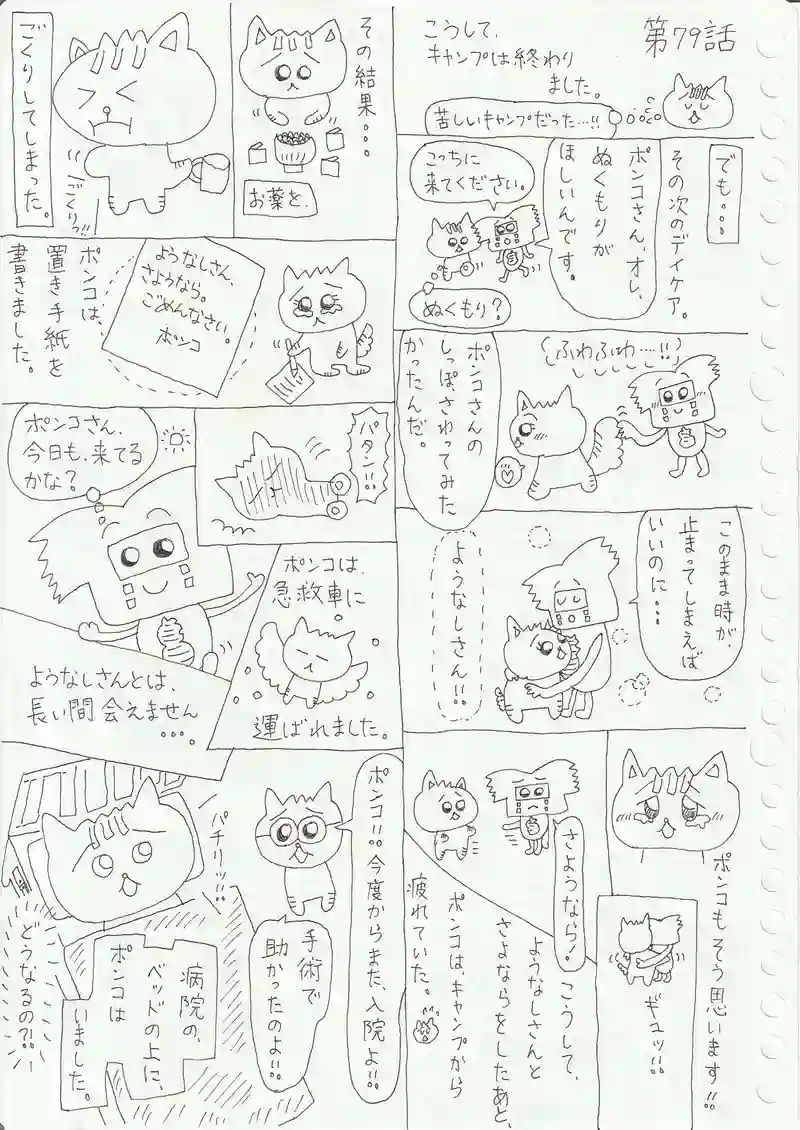 第79話
こうして、
キャンプは終わり
ました。
苦しいキャンプだった…!!
でも…
その次のデイケア。
ポンコさん、オレ、
ぬくもりが
ほしいんです。
こっちに
来てください。
ぬくもり?
(ふわふわ…!!)
ポンコさんの
しっぽさわってみた
かったんだ。
このまま時が、
止まってしまえば
いいのに…
ようなしさん!!
ポンコもそう思います!!
ギュッ!!
さようなら!
こうして、
ようなしさんと
さよならをしたあと、
ポンコは、キャンプから
疲れていた。
その結果…
お薬を、
ごくりしてしまった。
ごくりっ!!
ようなしさん、
さようなら。
ごめんなさい。
ポンコ
ポンコは、
置き手紙を
書きました。
パタン!!
ポンコさん、
今日も、来てる
かな?
ポンコは、
急救車に
運ばれました。
ようなしさんとは、
長い間会えません
…。
ポンコ!!今度からまた、入院よ!!
手術で
助かったのよ!!
パチリッ!!
病院の、
ベッドの上に、
ポンコは
いました。
どうなるの?!!